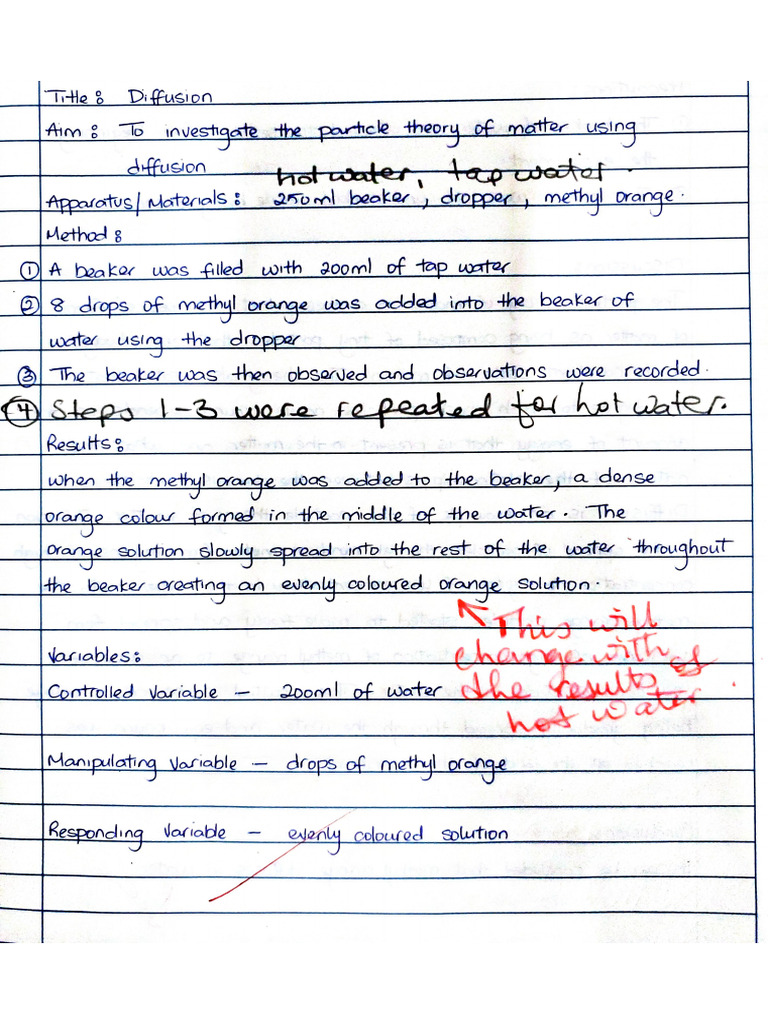 Title: Diffusion
Aim: To investigate the particle theory of matter using
diffusion
hot water, tap water.
Apparatus/Materials: 250ml beaker, dropper, methyl orange.
Method:
① A beaker was filled with 200ml of tap water
② 8 drops of methyl orange was added into the beaker of
water using the dropper
③ The beaker was then observed and observations were recorded.
④ Steps 1-3 were repeated for hot water.
Results:
when the methyl orange was added to the beaker, a dense
orange colour formed in the middle of the water. The
orange solution slowly spread into the rest of the water throughout
the beaker creating an evenly coloured orange solution.
This will
change with
the results of
hot water.
Variables:
Controlled variable - 200ml of water
Manipulating variable - drops of methyl orange
Responding variable - evenly coloured solution